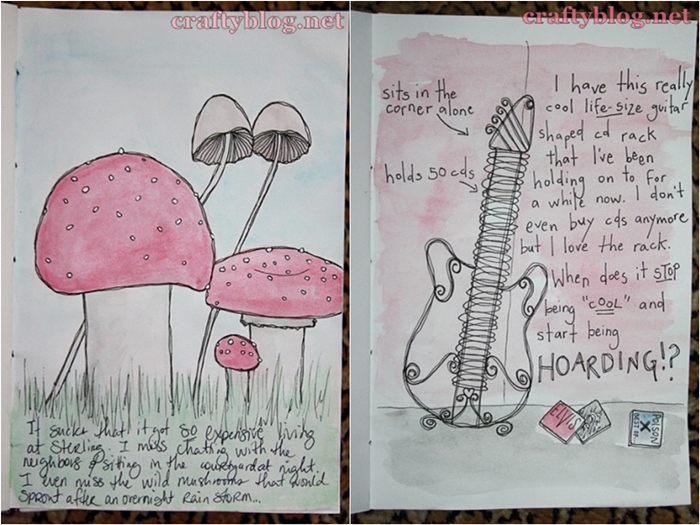 craftyblog.net
It sucks that it got so expensive living
at Sterling. I miss chatting with the
neighbors & sitting in the courtyard at night.
I even miss the wild mushrooms that would
sprout after an overnight rain storm...
craftyblog.net
sits in the
corner alone
holds 50 cds
I have this really
cool life-size guitar
shaped cd rack
that I've been
holding on to for
a while now. I don't
even buy cds anymore
but I love the rack.
When does it STOP
being "cool" and
start being
HOARDING!?
ELVIS
POISON